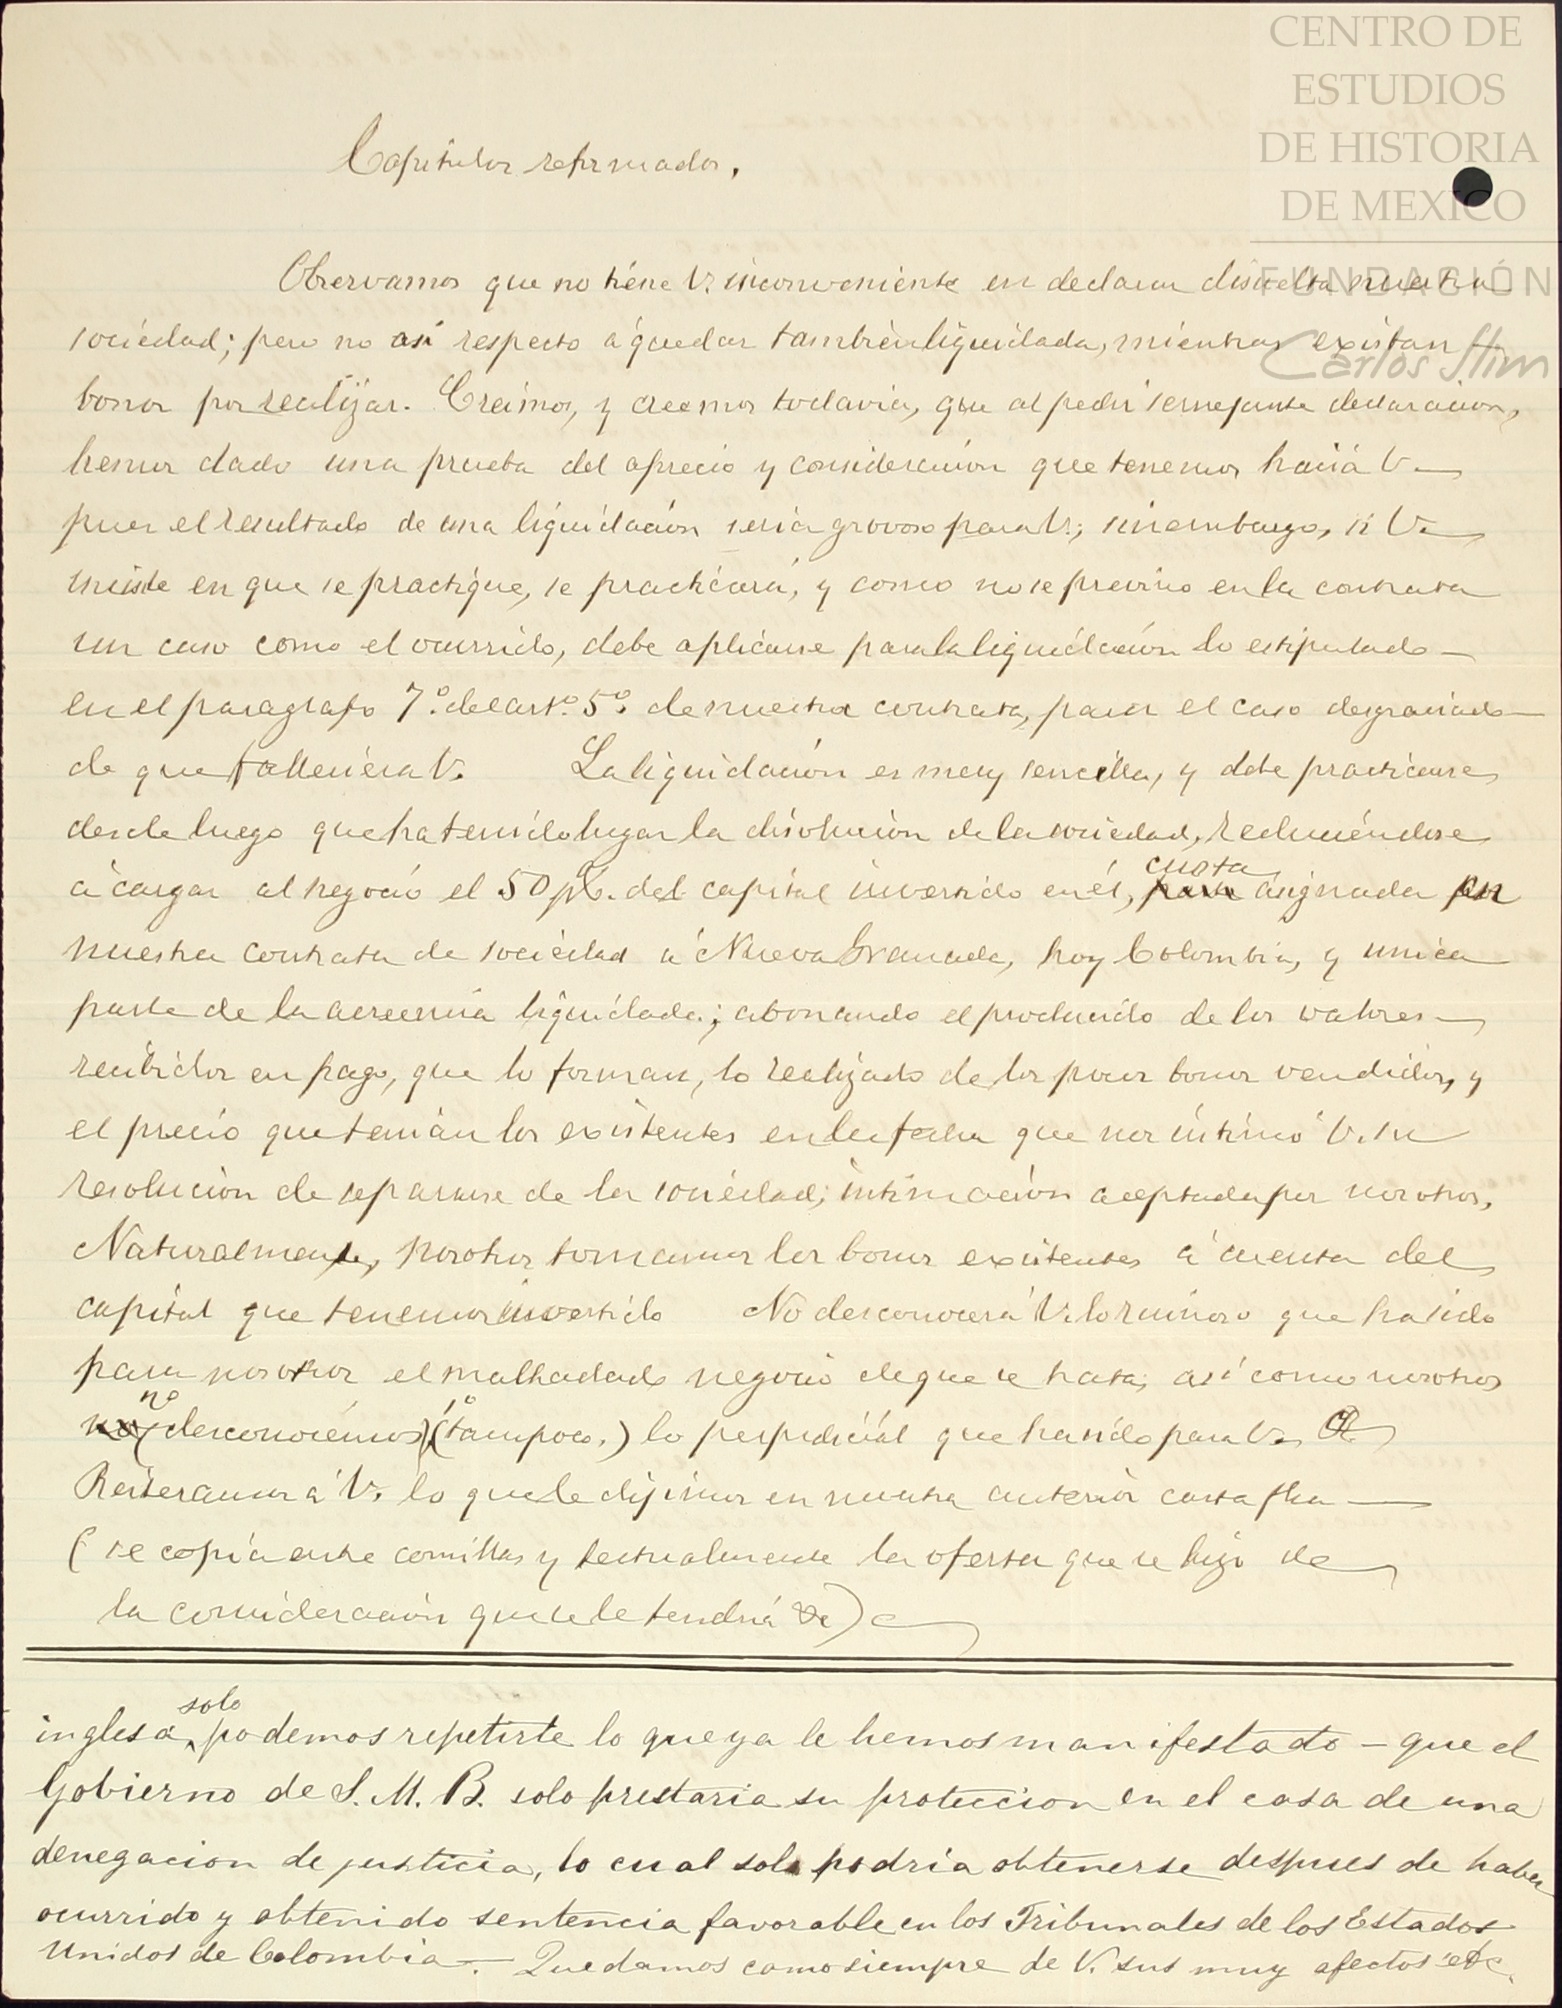 CENTRO DE
ESTUDIOS
DE HISTORIA
DE MEXICO
FUNDACIÓN
Carlos Slim
Capitulos reformados.
Observamos que no tiene V. inconveniente en declarar disuelta nuestra
sociedad; pero no así respecto á quedar tambien liquidada, mientras existan
bonos por realizar. Creimos, y creemos todavia, que al pedir semejante declaracion,
hemos dado una prueba del aprecio y consideracion que tenemos hacia V.
pues el resultado de una liquidación seria gravoso para V.; sinembargo, si V.
insiste en que se practique, se practicará, y como no se previno en la contrata
un caso como el ocurrido, debe aplicarse para la liquidación lo estipulado
en el paragrafo 7.º del art.º 5.º de nuestra contrata, para el caso desgraciado
de que falleciera V. La liquidación es muy sencilla, y debe practicarse
desde luego que ha tenido lugar la disolución de la sociedad, reduciéndose
á cargar al negocio el 50 p%. del capital invertido en él, cuota asignada por
nuestra contrata de sociedad á Nueva Granada, hoy Colombia, y unica
parte de la acreencia liquidada; abonando el producido de los valores
recibidos en pago, que lo forman, lo realizado de los pocos bonos vendidos, y
el precio que tenian los existentes en la fecha que nos intimó V. su
resolución de separarse de la sociedad; intimación aceptada por nosotros.
Naturalmente, nosotros tomamos los bonos existentes á cuenta del
capital que tenemos invertido No desconocerá V. lo ruinoso que ha sido
para nosotros el malhadado negocio de que se trata, así como nosotros
no (desconocemos) (tampoco,) lo perjudicial que ha sido para V.
Reiteramos á V. lo que le dijimos en nuestra anterior carta fha
(se copia entre comillas y textualmente la oferta que se hizo de
la consideración que se le tendria &c)
inglesa, solo podemos repetirte lo que ya le hemos manifestado – que el
Gobierno de S. M. B. solo prestaria su proteccion en el caso de una
denegacion de justicia, lo cual solo podria obtenerse despues de haber
ocurrido y obtenido sentencia favorable en los Tribunales de los Estados
Unidos de Colombia –. Quedamos como siempre de V. sus muy afectos etc.